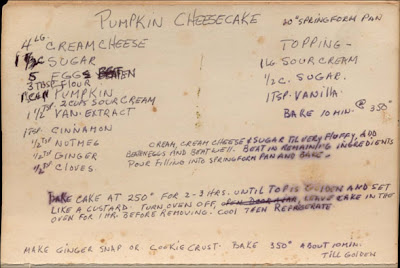 PUMPKIN CHEESECAKE
10" SPRINGFORM PAN
4 LG. CREAM CHEESE
1 1/2 C SUGAR
5 EGGS BEATEN
3 TBSP FLOUR
PUMPKIN
2 CUPS SOUR CREAM
1 1/2 TSP. VAN. EXTRACT
1 TSP. CINNAMON
1/2 TSP NUTMEG
1/2 TSP GINGER
1/2 TSP CLOVES.
TOPPING-
1 LG SOUR CREAM
1/2 C. SUGAR.
1 TSP. VANILLA
BAKE 10 MIN. @ 350°
CREAM, CREAM CHEESE & SUGAR TIL VERY FLUFFY, ADD
BEATEN EGGS AND BEAT WELL. BEAT IN REMAINING INGREDIENTS
POUR FILLING INTO SPRINGFORM PAN AND BAKE.
BAKE CAKE AT 250° FOR 2-3 HRS. UNTIL TOP IS GOLDEN AND SET
LIKE A CUSTARD. TURN OVEN OFF, OPEN DOOR LEAVE CAKE IN THE
OVEN FOR 1 HR. BEFORE REMOVING. COOL THEN REFRIGERATE
MAKE GINGER SNAP OR COOKIE CRUST. BAKE 350° ABOUT 10 MIN.
TILL GOLDEN